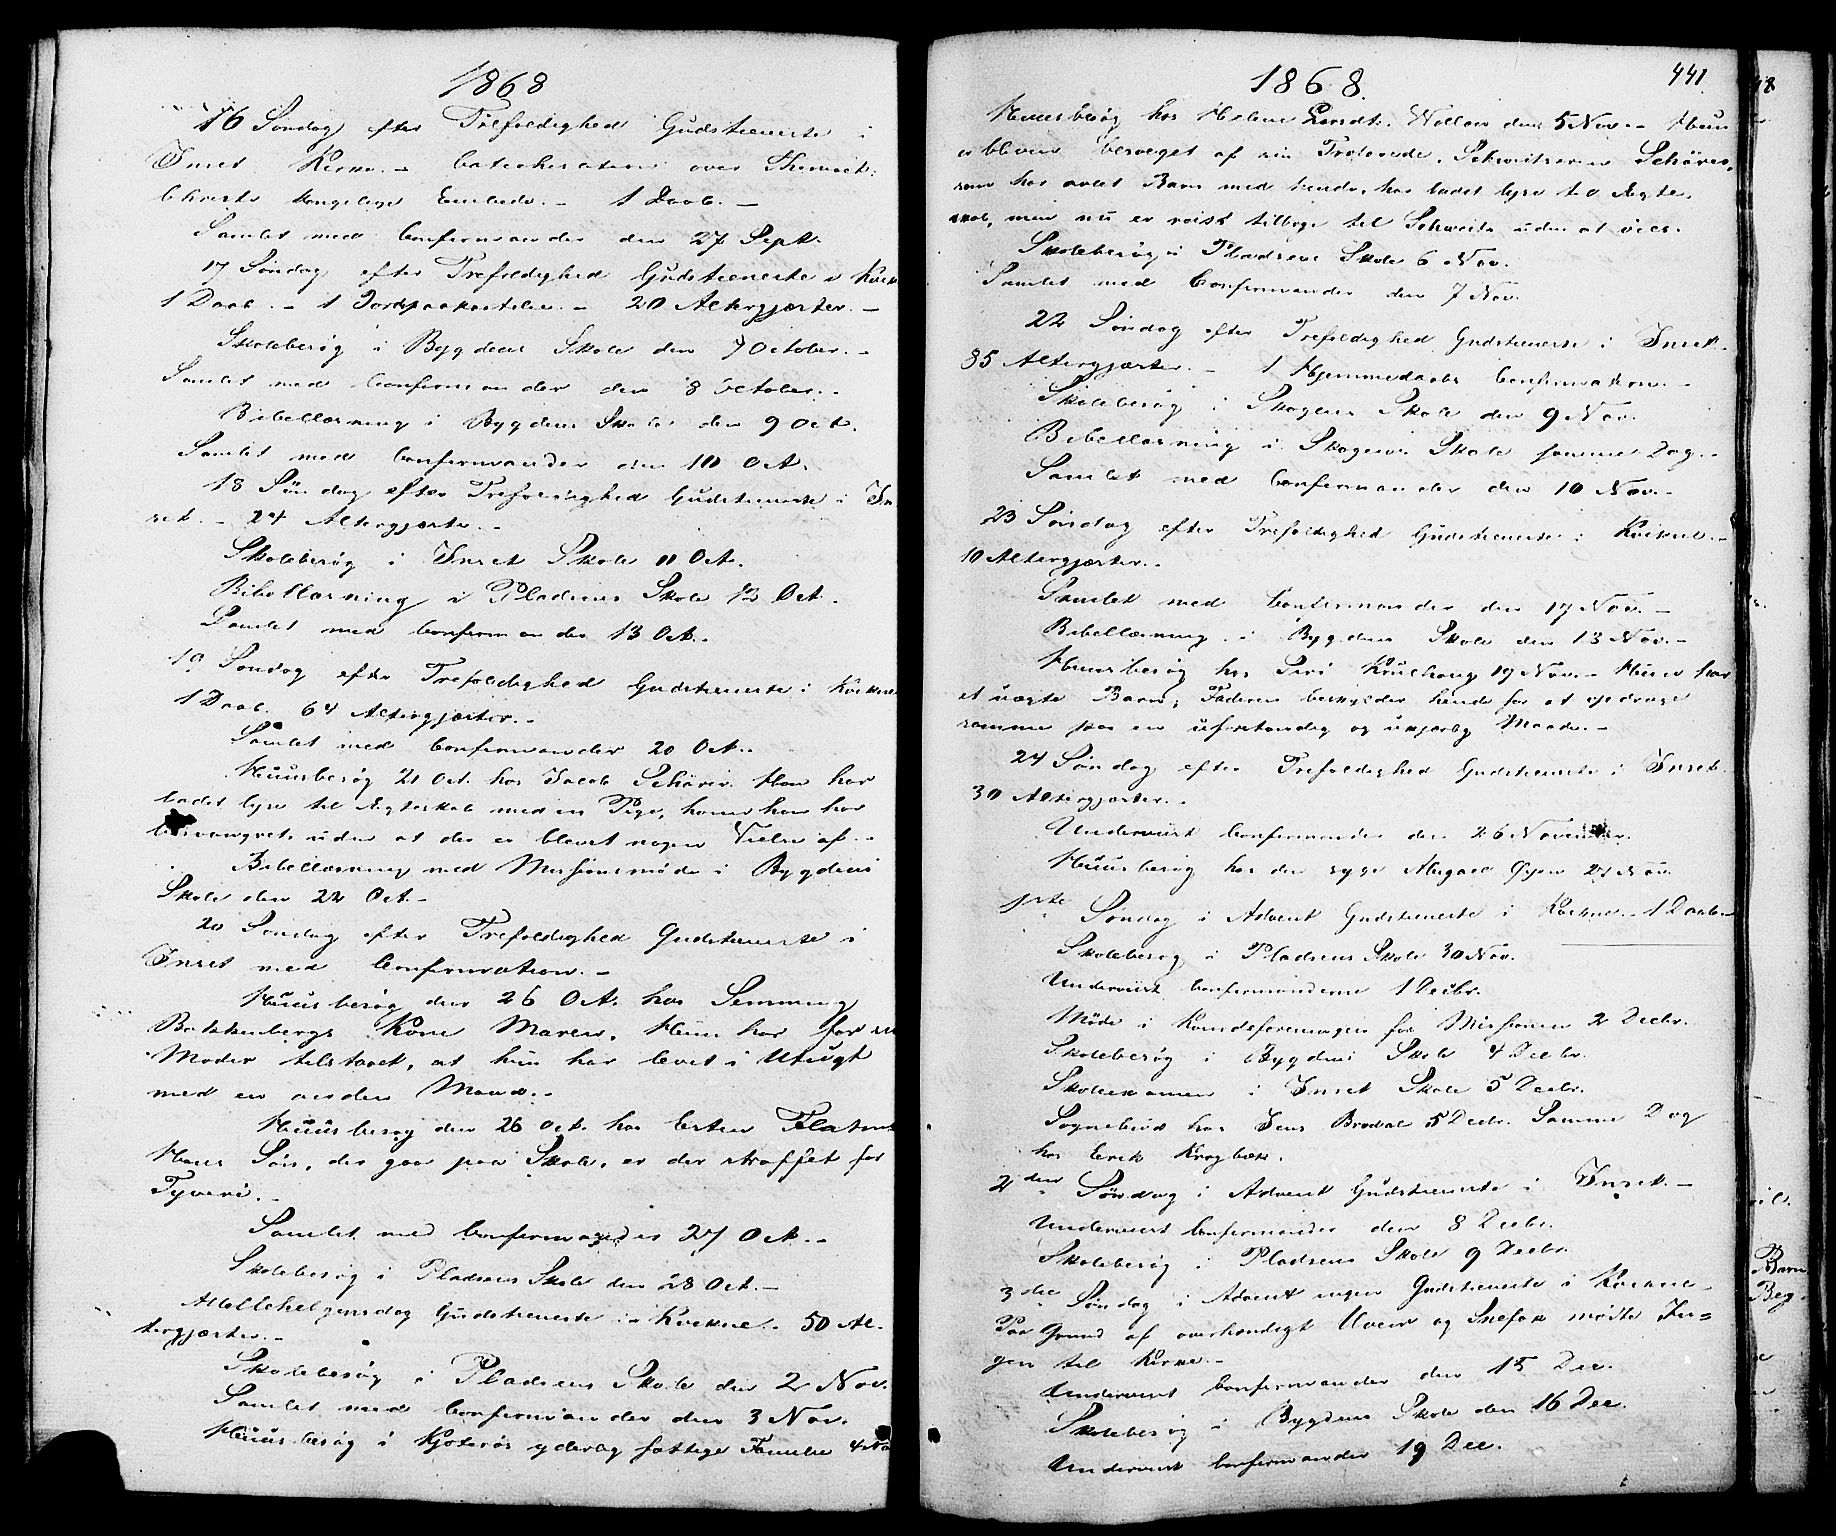 1868
16 Søndag efter Trefoldighed Gudstieneste i
Inset Kirke. - Catechisation over
Christi kongelige Embede. - 1 Daab. -
Samlet med Confirmander den 27 Sept.
17 Søndag efter Trefoldighed Gudstieneste i Kvik
1 Daab. - 1 Jordpaakastelse. - 20 Altergjæster. -
Skolebesøg i Bygdens Skole den 7 October. -
Samlet med Confirmander den 8 October. -
Bibellæsning i Bygdens Skole den 9 Oct.
Samlet med Confirmander den 10 Oct.
18 Søndag efter Trefoldighed Gudstieneste i In
set. - 24 Altergjæster. -
Skolebesøg i Inset Skole 11 Oct.
Bibellæsning i Pladsens Skole 12 Oct. -
Samlet med Confirmander 13 Oct. -
19 Søndag efter Trefoldighed Gudstieneste i Kvikne
1 Daab. 64 Altergjæster. -
Samlet med Confirmander 20 Oct. -
Huusbesøg 21 Oct. hos Jacob Schärer. Han har
ladet lyse til Ægteskab med en Pige, hvem han har
besvangret, uden at der er blevet nogen Vielse af. -
Bibellæsning med Missionsmøde i Bygdens
Skole den 22 Oct. -
20 Søndag efter Trefoldighed Gudstieneste i
Inset med Confirmation. -
Huusbesøg den 26 Oct. hos Semming
Bakkenbergs Kone Maren. Hun har for sin
Moder tilstaaet, at hun har levet i Utugt
med en anden Mand. -
Huusbesøg den 26 Oct. hos Esten
Hans Søn, der gaar paa Skole, er der straffet for
Tyveri. -
Samlet med Confirmander 27 Oct. -
Skolebesøg i Pladsens Skole den 28 Oct. -
Allehelgensdag Gudstieneste i Kvikne. 50 Al-
tergjæster. -
Skolebesøg i Pladsens Skole den 2 Nov.
Samlet med Confirmander den 3 Nov.
Huusbesøg i yderlig fattige Familie 4 No
1868.
441.
Huusbesøg hos Helene den 5 Nov. - Hun
er bleven besveget af sin Trolovede, Schweitseren Schärer,
som har avlet Barn med hende, har ladet lyse til Ægte-
skab, men nu er reist tilbage til Schweits uden at vies.
Skolebesøg i Pladsens Skole 6 Nov.
Samlet med Confirmander den 7 Nov.
22 Søndag efter Trefoldighed Gudstieneste i Inset.
35 Altergjæster. - 1 Hjemmedaabs Confirmation. -
Skolebesøg i Skogens Skole den 9 Nov.
Bibellæsning i Skogens Skole samme Dag. -
Samlet med Confirmander den 10 Nov. -
23 Søndag efter Trefoldighed Gudstieneste i Kvikne. -
10 Altergjæster. -
Samlet med Confirmander den 17 Nov. -
Bibellæsning i Bygdens Skole den 13 Nov. -
Huusbesøg hos Siri 19 Nov. - Hun har
et uægte Barn; Faderen beskylder hende for at opdrage
samme paa en uforstandig og ukjærlig Maade. -
24 Søndag efter Trefoldighed Gudstieneste i Inset.
30 Altergjæster. -
Underviist Confirmander den 26 November.
Huusbesøg hos den syge 27 Nov.
1ste Søndag i Advent Gudstieneste i Kvikne. - 1 Daab. -
Skolebesøg i Pladsens Skole 30 Nov.
Underviist Confirmanderne 1 Decbr.
Møde i Kvindeforeningen for Missionen 2 Decbr.
Skolebesøg i Bygdens Skole 4 Decbr.
Skoleexamen i Inset Skole 5 Decbr.
Sognebud hos Jens Brodal 5 Decbr. Samme Dag
hos Erik Krogbæk.
2den Søndag i Advent Gudstieneste i Inset. -
Underviist Confirmander den 8 Decbr.
Skolebesøg i Pladsens Skole 9 Decbr.
3die Søndag i Advent ingen Gudstieneste i Kvikne -
Paa Grund af overhændigt Uveir og Snefok mødte In-
gen til Kirke. -
Underviist Confirmander den 15 Dec.
Skolebesøg i Bygdens Skole den 16 Dec.
Underviist Confirmander 19 Dec.
Barn
Beg